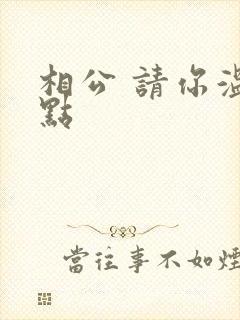 相公 請你溫
點
當往事不如煙